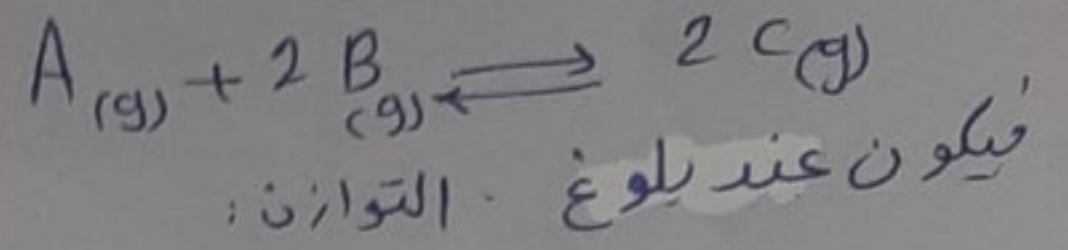 A(g) + 2 B(g) ⇌ 2 C(g)
فيكون عند بلوغ التوازن :